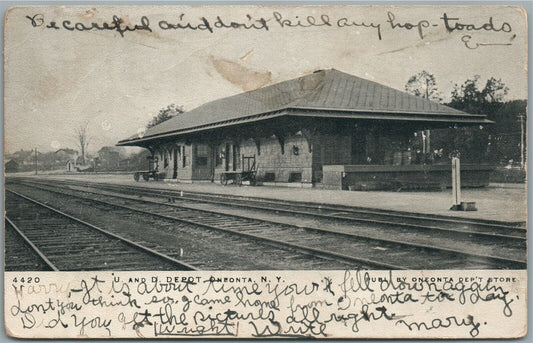 Be careful and don't kill any hop-toads
Em
4420 U. AND D. DEPOT, ONEONTA, N. Y. PUBL. BY ONEONTA DEP'T STORE
Harry- It is about time your I fell down again
dont you think so. I came home from Oneonta to day.
Did you get the pictures all right
(Wright) Write Mary.